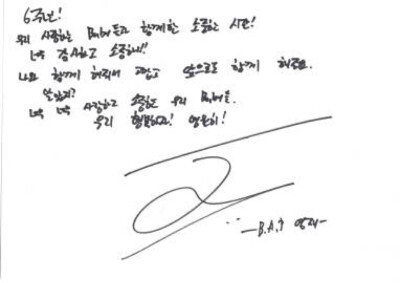 6주년!
우리 사랑하는 Baby들과 함께한 소중한 시간!
너무 감사하고 소중해!!
나와 함께 해줘서 고맙고 앞으로도 함께 해줘요.
알겠지?
너무 너무 사랑하고 소중한 우리 Baby들.
우리 행복하자! 영원히!
-B.A.P 영재-